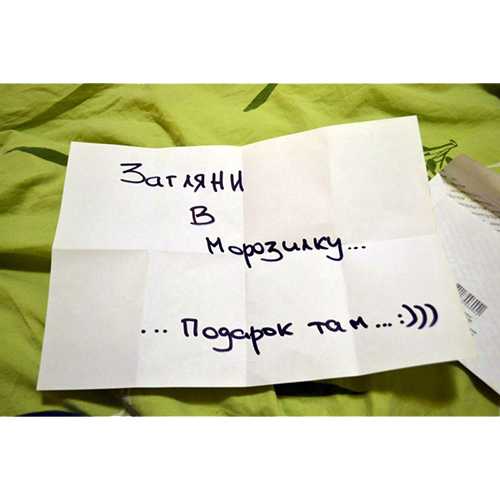 Загляни
в
морозилку...
... Подарок там...:)))